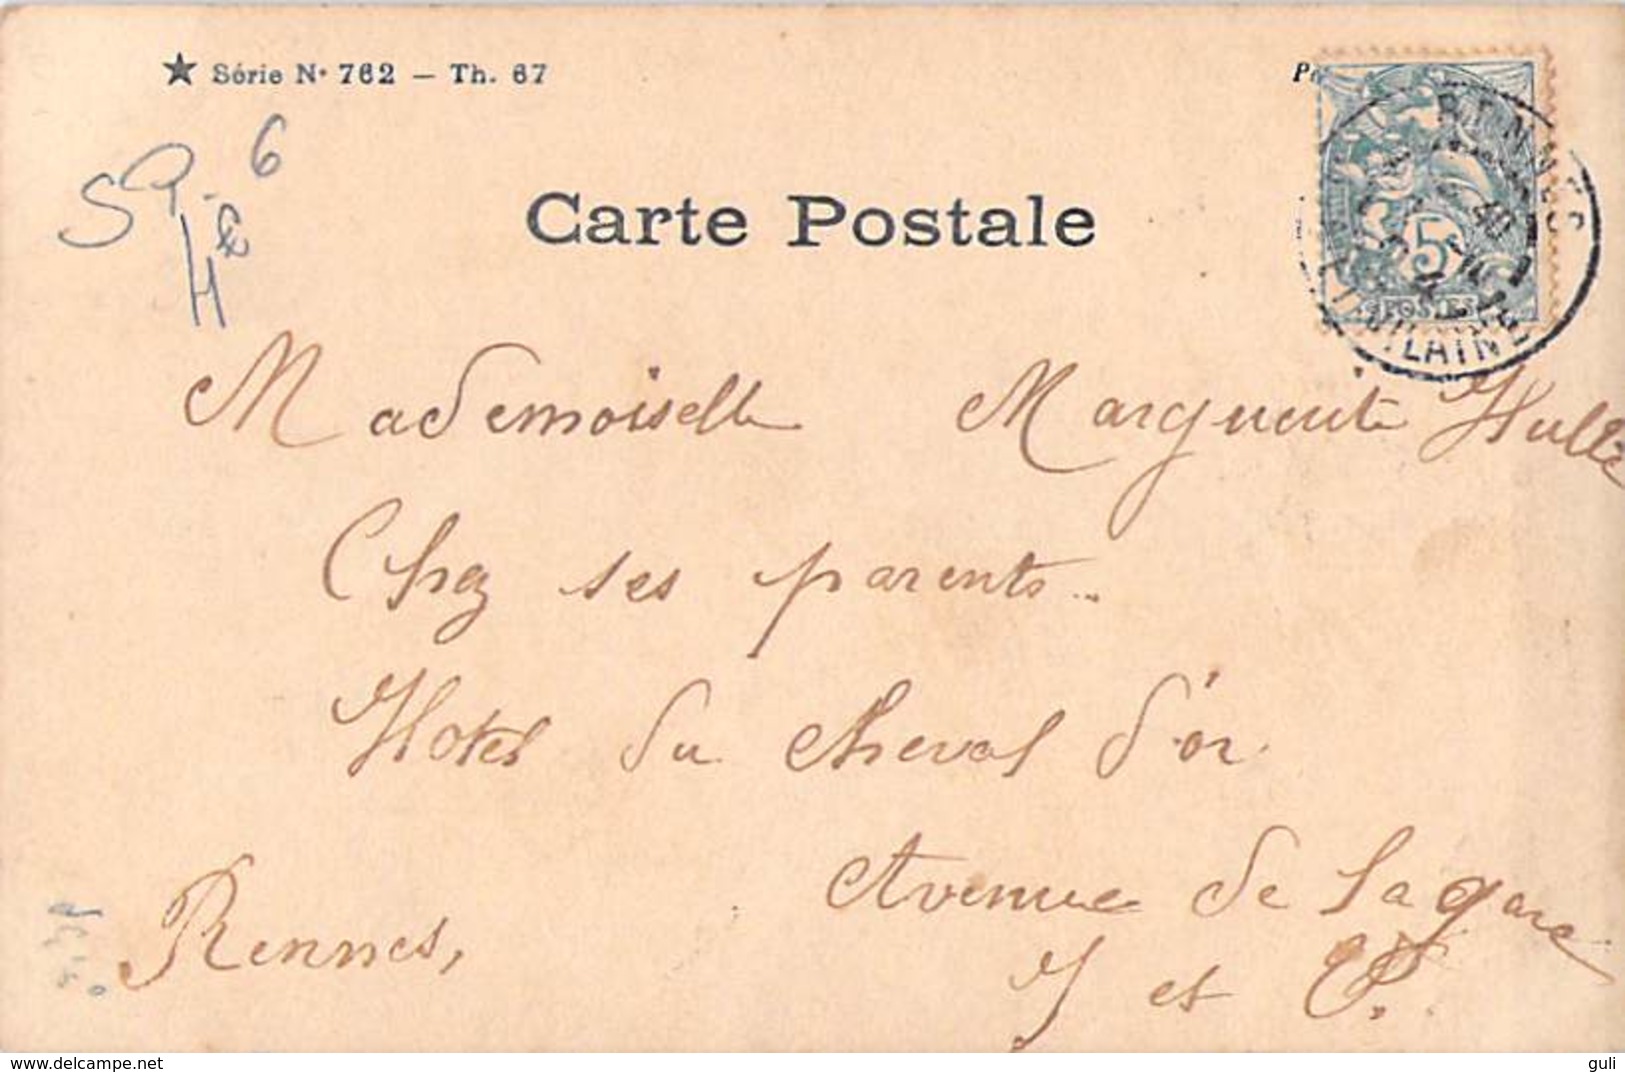 ★ Série N° 762 — Th. 67
6
Carte Postale
5
POSTES
RENNES
VILAINE
Mademoiselle Marguerite
Chez ses parents..
Hotel du Cheval d'or
Avenue de la gare
Rennes,
I et V.
© www.delcampe.net
guli